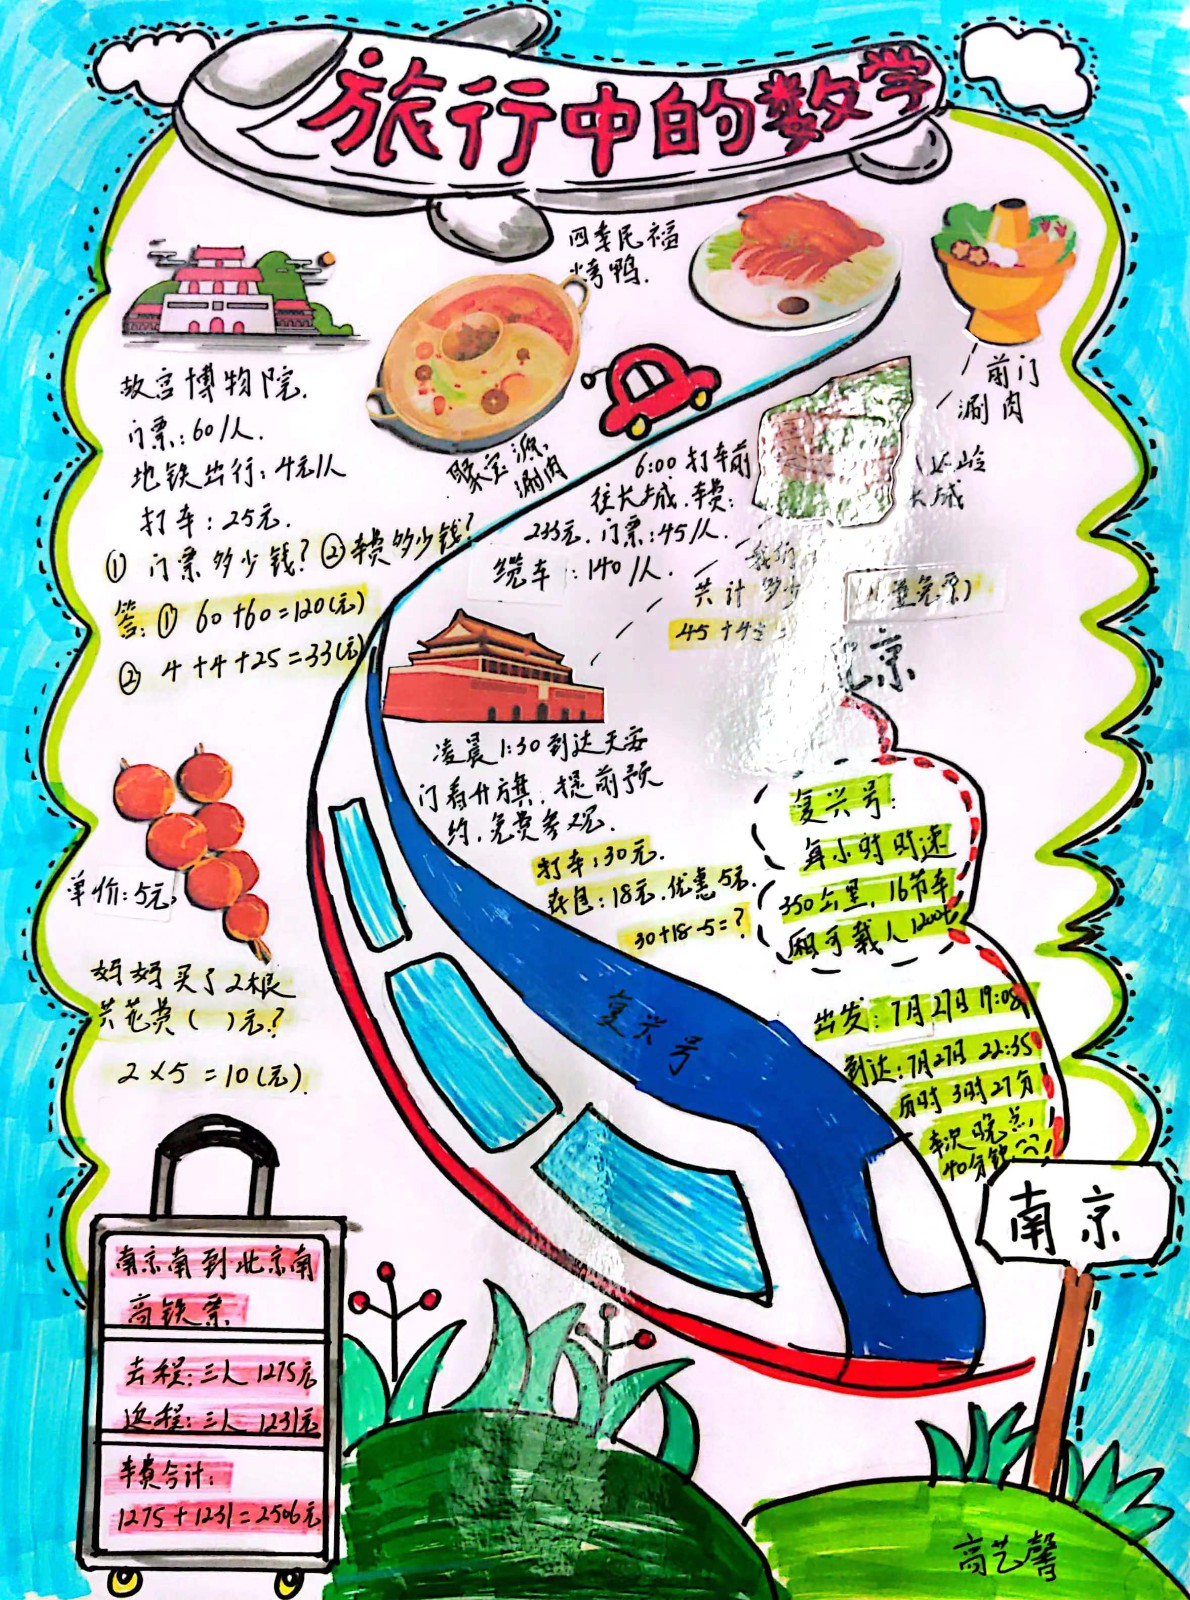 旅行中的数学
四季民福
烤鸭.
前门
涮肉
聚宝源
涮肉
故宫博物院.
门票:60/人.
地铁出行:4元/人
打车:25元.
① 门票多少钱?②车费多少钱?
答:① 60+60=120(元)
② 4+4+25=33(元)
6:00 打车前
往长城.车费:
233元.门票:45/人.
缆车:140/人.
岭
长城
我们
共计多少
儿童免票)
45+45
北京
凌晨1:30到达天安
门看升旗,提前预
约,免费参观.
打车:30元.
面包:18元,优惠5元.
30+18-5=?
复兴号:
每小时时速
350公里,16节车
厢可载人1200
出发:7月27日 19:08
到达:7月27日 22:35
历时 3时27分
车次晚点
40分钟
复兴号
单价:5元,
妈妈买了2根
共花费( )元?
2×5=10(元).
南京
南京南到北京南
高铁票
去程:三人 1275元
返程:三人 1231元
车费合计:
1275+1231=2506元
高艺馨